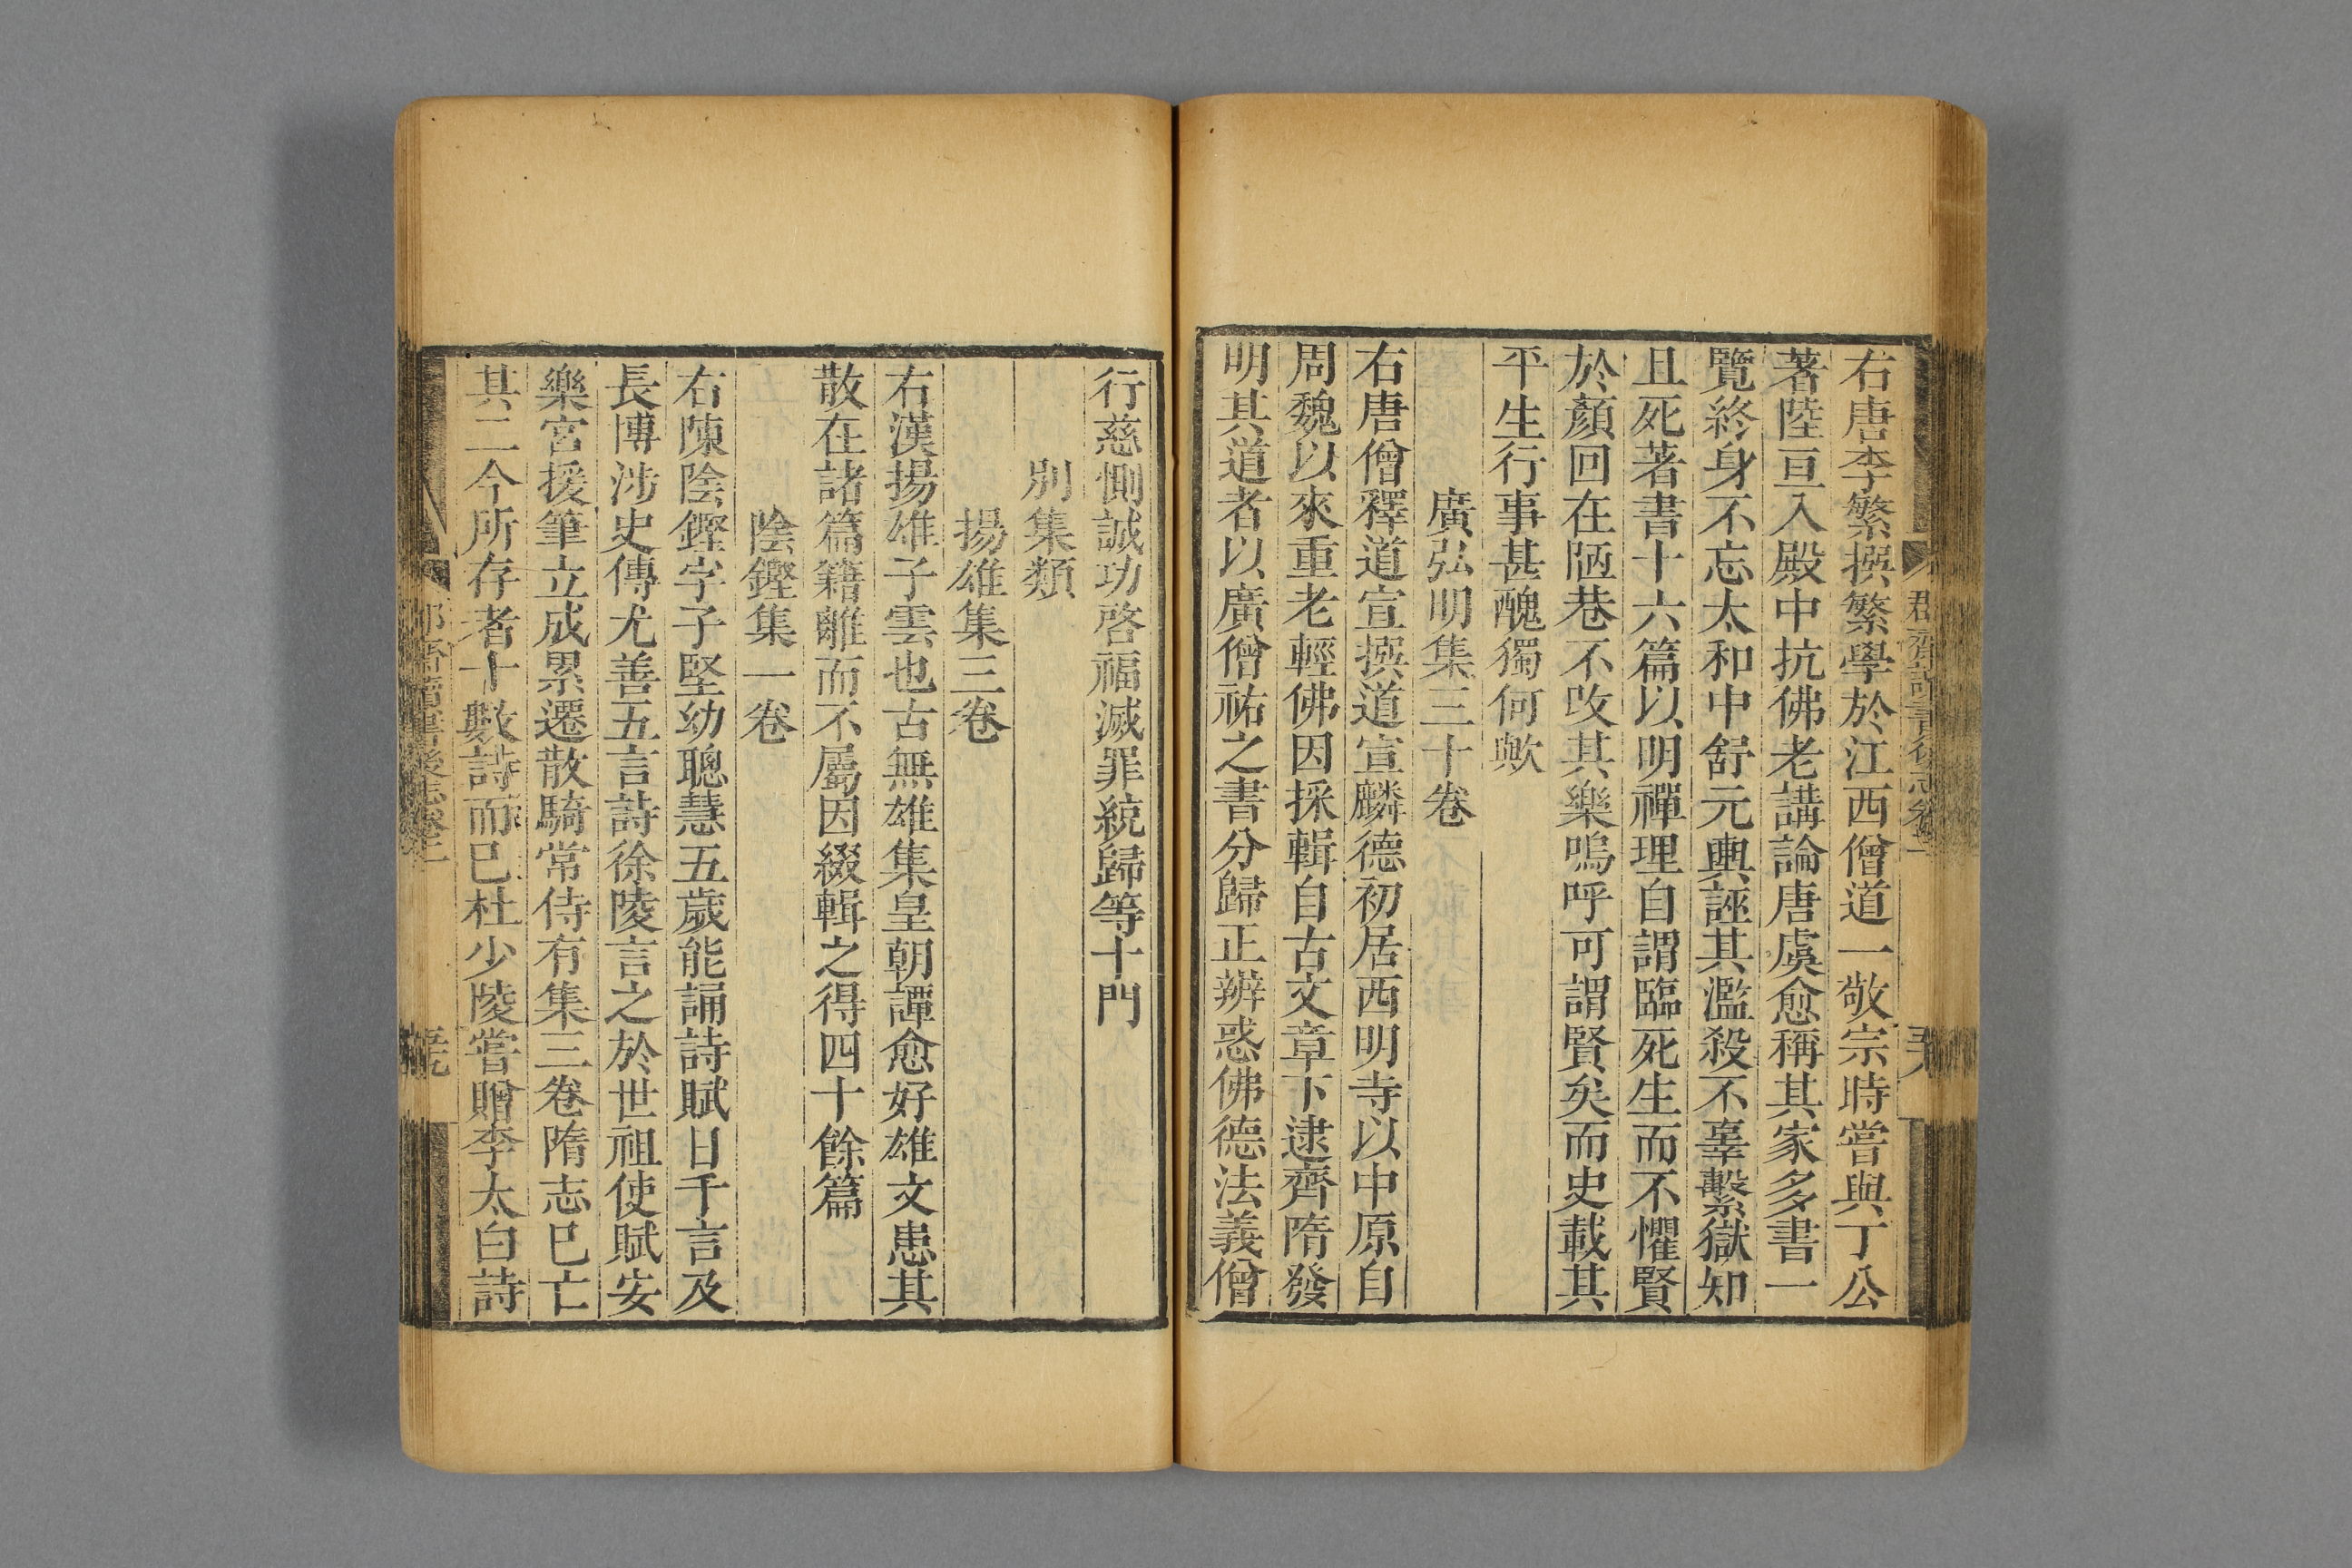 右唐李繁撰繁學於江西僧道一敬宗時嘗與丁公
著陸亘入殿中抗佛老講論唐虞愈稱其家多書一
覽終身不忘太和中舒元輿誣其濫殺不辜繫獄知
且死著書十六篇以明禪理自謂臨死生而不懼賢
於顏回在陋巷不改其樂嗚呼可謂賢矣而史載其
平生行事甚醜獨何歟
廣弘明集三十卷
右唐僧釋道宣撰道宣麟德初居西明寺以中原自
周魏以來重老輕佛因採輯自古文章下逮齊隋發
明其道者以廣僧祐之書分歸正辨惑佛德法義僧
行慈惻誠功啓福滅罪統歸等十門
別集類
揚雄集三卷
右漢揚雄子雲也古無雄集皇朝譚愈好雄文患其
散在諸篇籍離而不屬因綴輯之得四十餘篇
陰鏗集一卷
右陳陰鏗字子堅幼聰慧五歲能誦詩賦日千言及
長博涉史傳尤善五言詩徐陵言之於世祖使賦安
樂宮援筆立成累遷散騎常侍有集三卷隋志巳亡
其二今所存者十數詩而巳杜少陵嘗贈李太白詩